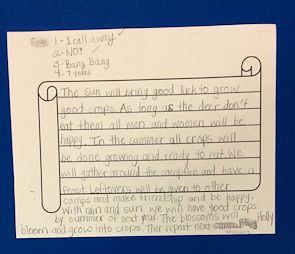 1-1 call away
2-NO!
3-Bang Bang
4-7 years
The Sun will bring good luck to grow
good crops. As long as the deer don't
eat them all men and women will be
happy. In the summer all crops will
be done growing and ready to eat. We
will gather around the campfire and have a
feast. Leftovers will be given to other
camps and make friendship and be happy.
With rain and sun we will have good crops
by summer of next year. The blossoms will
Holly
bloom and grow into crops. Then repeat next